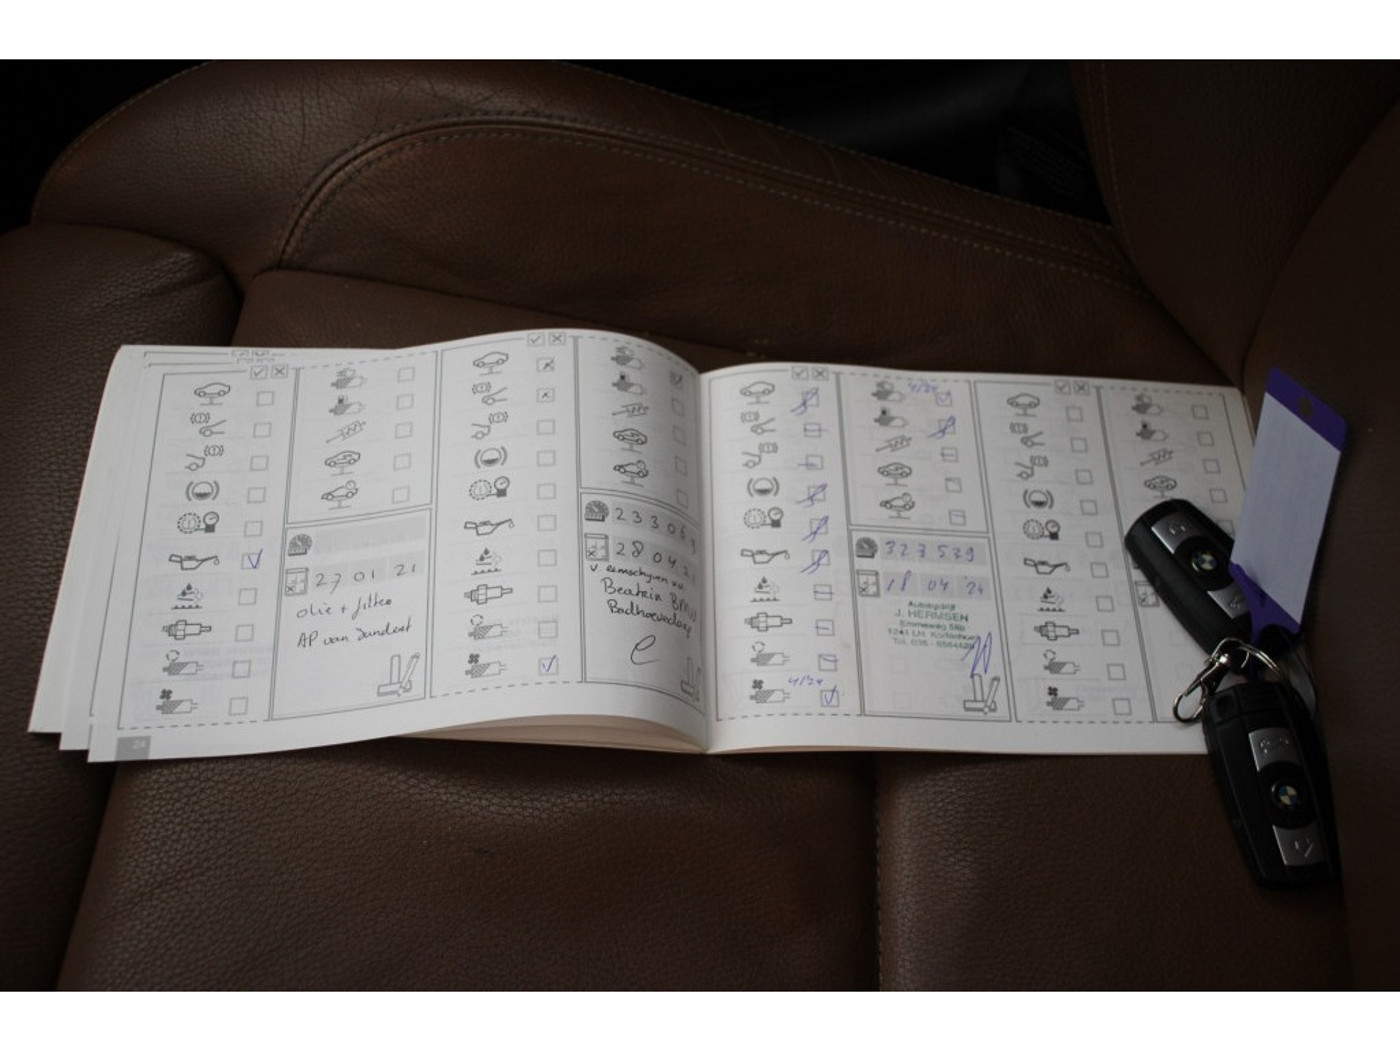 27 01 21
olie + filter
AP van Dundert
24
23306
28 04 2
Beatrix BMW
Badhoevedorp
4/24
327539
18 04 '24
Autobedrijf
J. HERMSEN
Emmaweg 58B
1241 LH Kortenhoef
Tel. 035 - 6564424
4/24